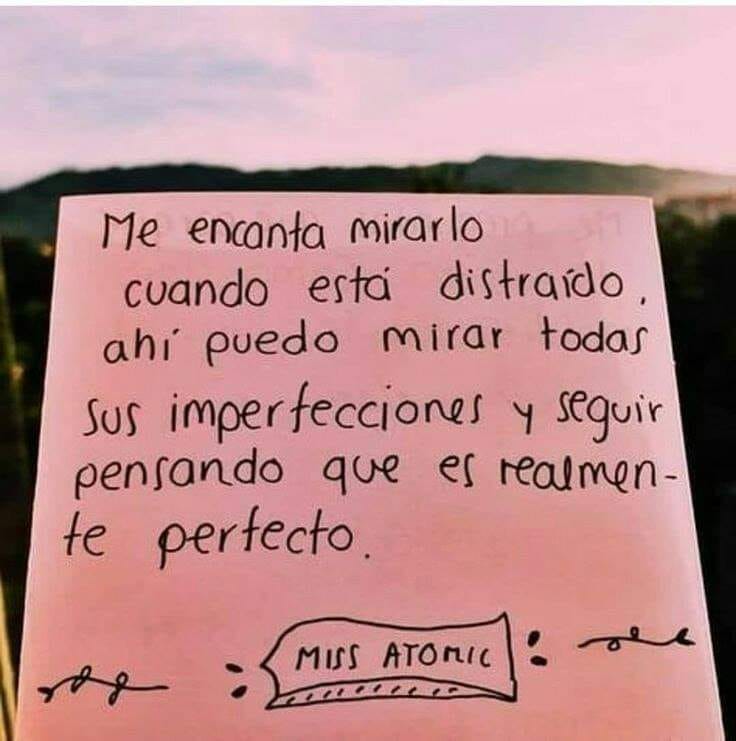 Me encanta mirarlo
cuando está distraído,
ahí puedo mirar todas
sus imperfecciones y seguir
pensando que es realmen-
te perfecto.
MISS ATOMIC